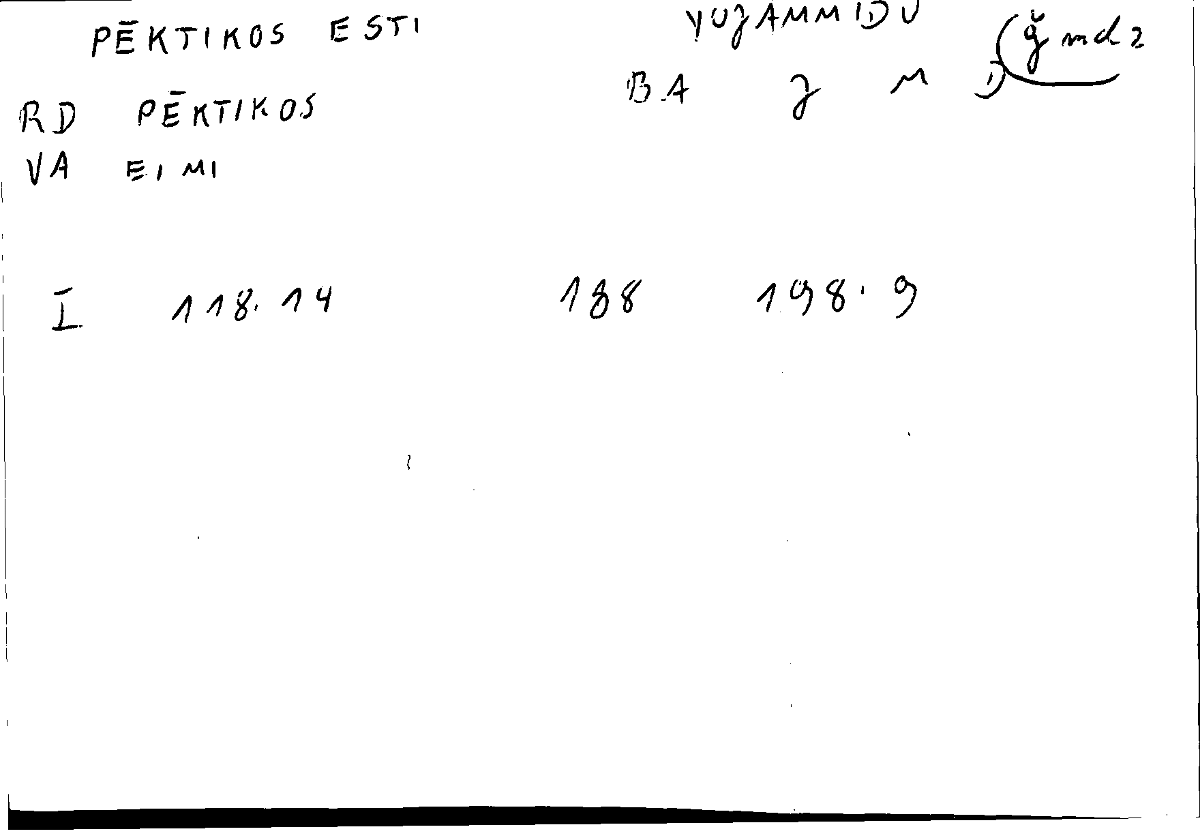 PĒKTIKOS ESTI YUJAMMIDU
(ğ md 2
BA J M D
RD PĒKTIKOS
VA EIMI
I 118.14 188 198.9